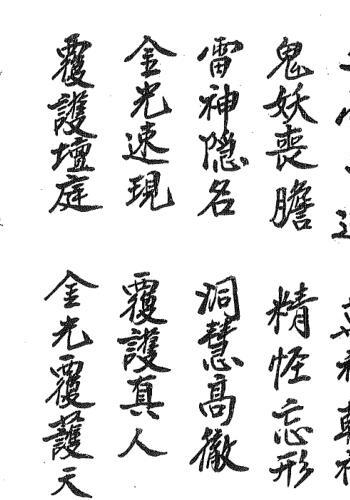 鬼妖喪膽 精怪忘形
雷神隐名 洞慧高徹
金光速現 覆護真人
覆護壇庭 金光覆護天